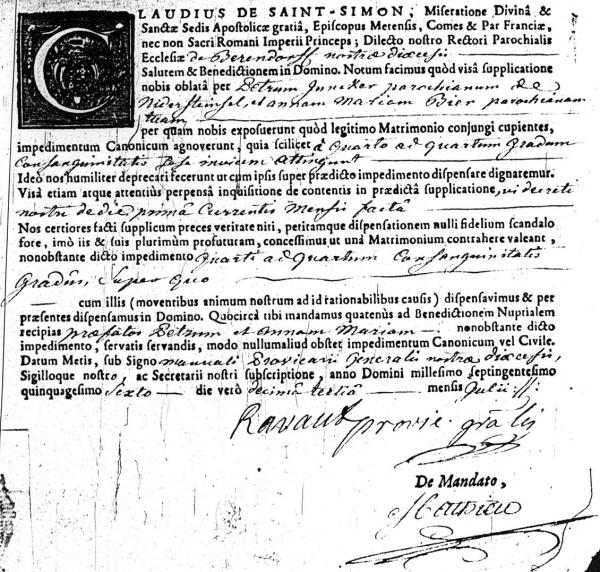 CLAUDIUS DE SAINT-SIMON, Miseratione Divinâ &
Sanctæ Sedis Apostolicæ gratiâ, Episcopus Metensis, Comes & Par Franciæ,
nec non Sacri Romani Imperii Princeps; Dilecto nostro Rectori Parochialis
Ecclesiæ de Berendorff nostræ diœcesis
Salutem & Benedictionem in Domino. Notum facimus quòd visâ supplicatione
nobis oblatâ per Petrum Juncker parochianum de
Niderstinsel, et annam Mariam Bier parochianam
tuam
per quam nobis exposuerunt quòd legitimo Matrimonio conjungi cupientes,
impedimentum Canonicum agnoverunt, quia scilicet à Quarto ad Quartum gradum
Consanguinitatis sese invicem attingunt
Ideò nos humiliter deprecari fecerunt ut cum ipsis super prædicto impedimento dispensare dignaremur.
Visâ etiam atque attentiùs perpensâ inquisitione de contentis in prædictâ supplicatione, vi decreti
nostri de die primâ Currentis Mensis factâ
Nos certiores facti supplicum preces veritate niti, petitamque dispensationem nulli fidelium scandalo
fore, imò iis & suis plurimùm profuturam, concessimus ut unâ Matrimonium contrahere valeant,
nonobstante dicto impedimento Quarti ad Quartum Consanguinitatis
gradûs, super Quo
cum illis (moventibus animum nostrum ad id rationabilibus causis) dispensavimus & per
præsentes dispensamus in Domino. Quocircà tibi mandamus quatenùs ad Benedictionem Nuptialem
recipias præfatos Petrum et Annam Mariam nonobstante dicto
impedimento, servatis servandis, modo nullum aliud obstet impedimentum Canonicum vel Civile.
Datum Metis, sub Signo manuali Provicarii Generalis nostræ diœcesis,
Sigilloque nostro, ac Secretarii nostri subscriptione, anno Domini millesimo septingentesimo
quinquagesimo Sexto die verò decimâ tertiâ mensis Julii
Ravaut provic. gralis
De Mandato,